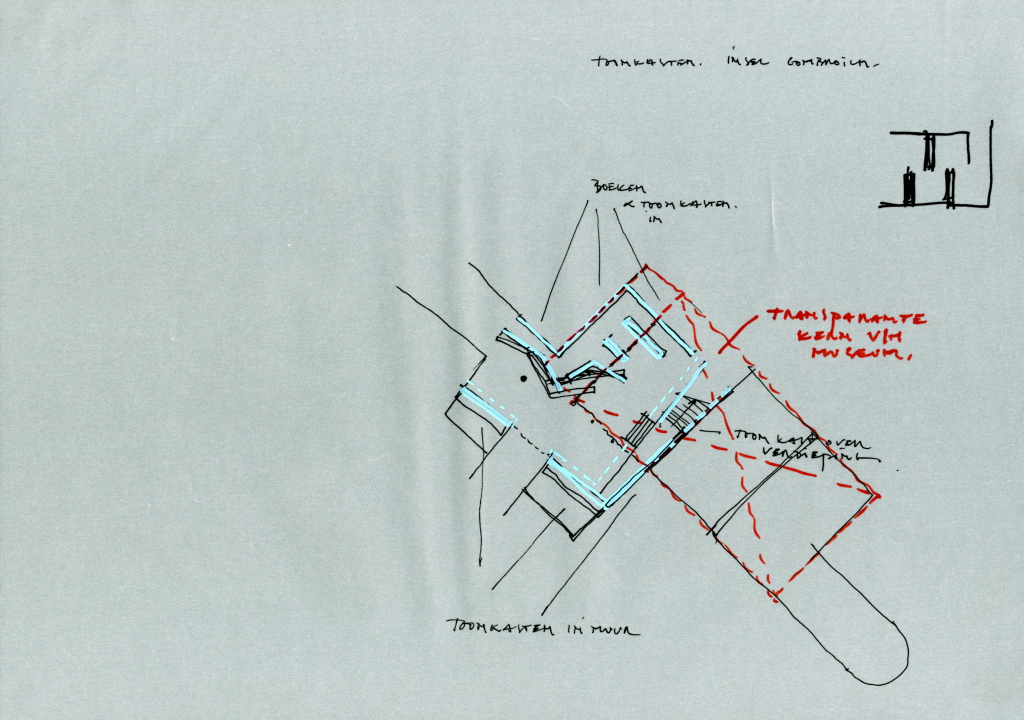 TOONKASTEN. INSEL HOMBROICH.
BOEKEN
& TOONKASTEN.
IN
TRANSPARANTE
KERN V/H
MUSEUM.
TOONKAST OVER
VERDIEPING
TOONKASTEN IN MUUR